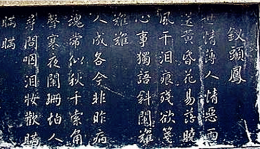 釵頭鳳
世情薄人情惡雨
送黃昏花易落曉
風干泪痕殘欲箋
心事獨語斜闌難
難難
人成各今非昨病
魂常似秋千索角
聲寒夜闌珊怕人
尋問咽泪妝歡瞞
瞞瞞